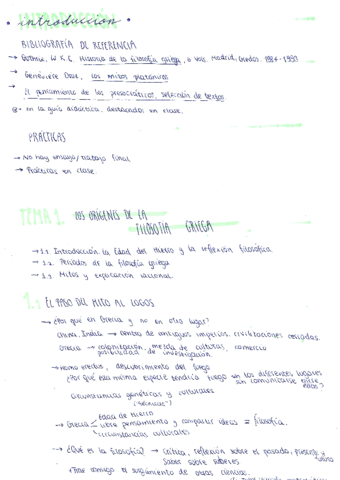 INTRODUCCIÓN
introducción
BIBLIOGRAFÍA DE REFERENCIA
→ Guthrie, W.K.C, Historia de la filosofía griega, 6 vols. Madrid, Gredos. 1984-1993
→ Geneviève Droz, Los mitos platónicos
→ El pensamiento de los presocráticos, selección de textos
en la guía didáctica, destacados en clase.
PRÁCTICAS
→ No hay ensayo/trabajo final
→ Prácticas en clase
TEMA 1. LOS ORÍGENES DE LA
FILOSOFÍA GRIEGA
→ 1.1. Introducción. la Edad del Hierro y la reflexión filosófica
→ 1.2. Periodos de la filosofía griega
→ 1.3. Mitos y explicación racional.
1.1 EL PASO DEL MITO AL LOGOS
→ ¿Por qué en Grecia y no en otro lugar?
China, India → centros de antiguos imperios, civilizaciones cerradas.
Grecia → colonización, mezcla de culturas, comercio
posibilidad de investigación.
→ homo erectus, descubrimiento del fuego
¿Por qué esa misma especie tendría fuego en los diferentes lugares
sin comunicarse entre
ellos?
circunstancias genéticas y culturales
Edad de Hierro
→ Grecia libre pensamiento y comparar ideas = filosofía.
circunstancias culturales
→ ¿Qué es la filosofía? → crítica, reflexión sobre el pasado, presente y
futuro
Saber sobre saberes
• Trae consigo el surgimiento de otras ciencias.